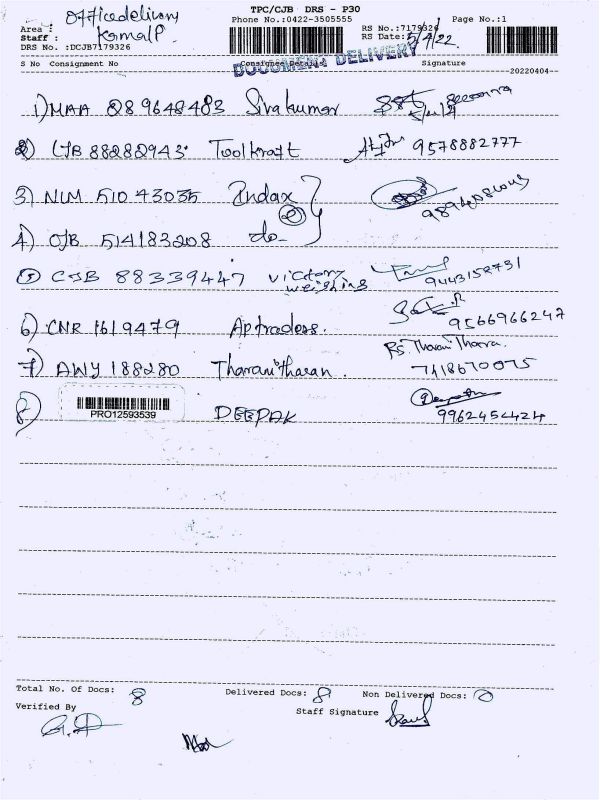 TPC/CJB DRS - P30
Area : Officedelivery
Phone No.:0422-3505555
RS No.:7179326
Page No.:1
Staff : KomalP.
RS Date: 5/4/22.
DRS No. :DCJB7179326
DOCUMENT DELIVERY
S No Consignment No Consignee Details Signature
20220404
1) MAA 289648483 Sivakumar
2) CJB 88282943 Toolkraft 9578882777
3) NLM 510 43035 Indax
4) CJB 514183208 do-
5) CJB 88339447 victory weighing 9443152731
6) CNR 1619479 Aptraders. 9566966247
Rs. Tharani Tharan.
7) AWY 188280 Tharanitharan. 7418670075
8) PRO12593539 DEEPAK 9962454424
Total No. Of Docs: 8 Delivered Docs: 8 Non Delivered Docs: 0
Verified By Staff Signature